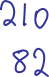 210
82